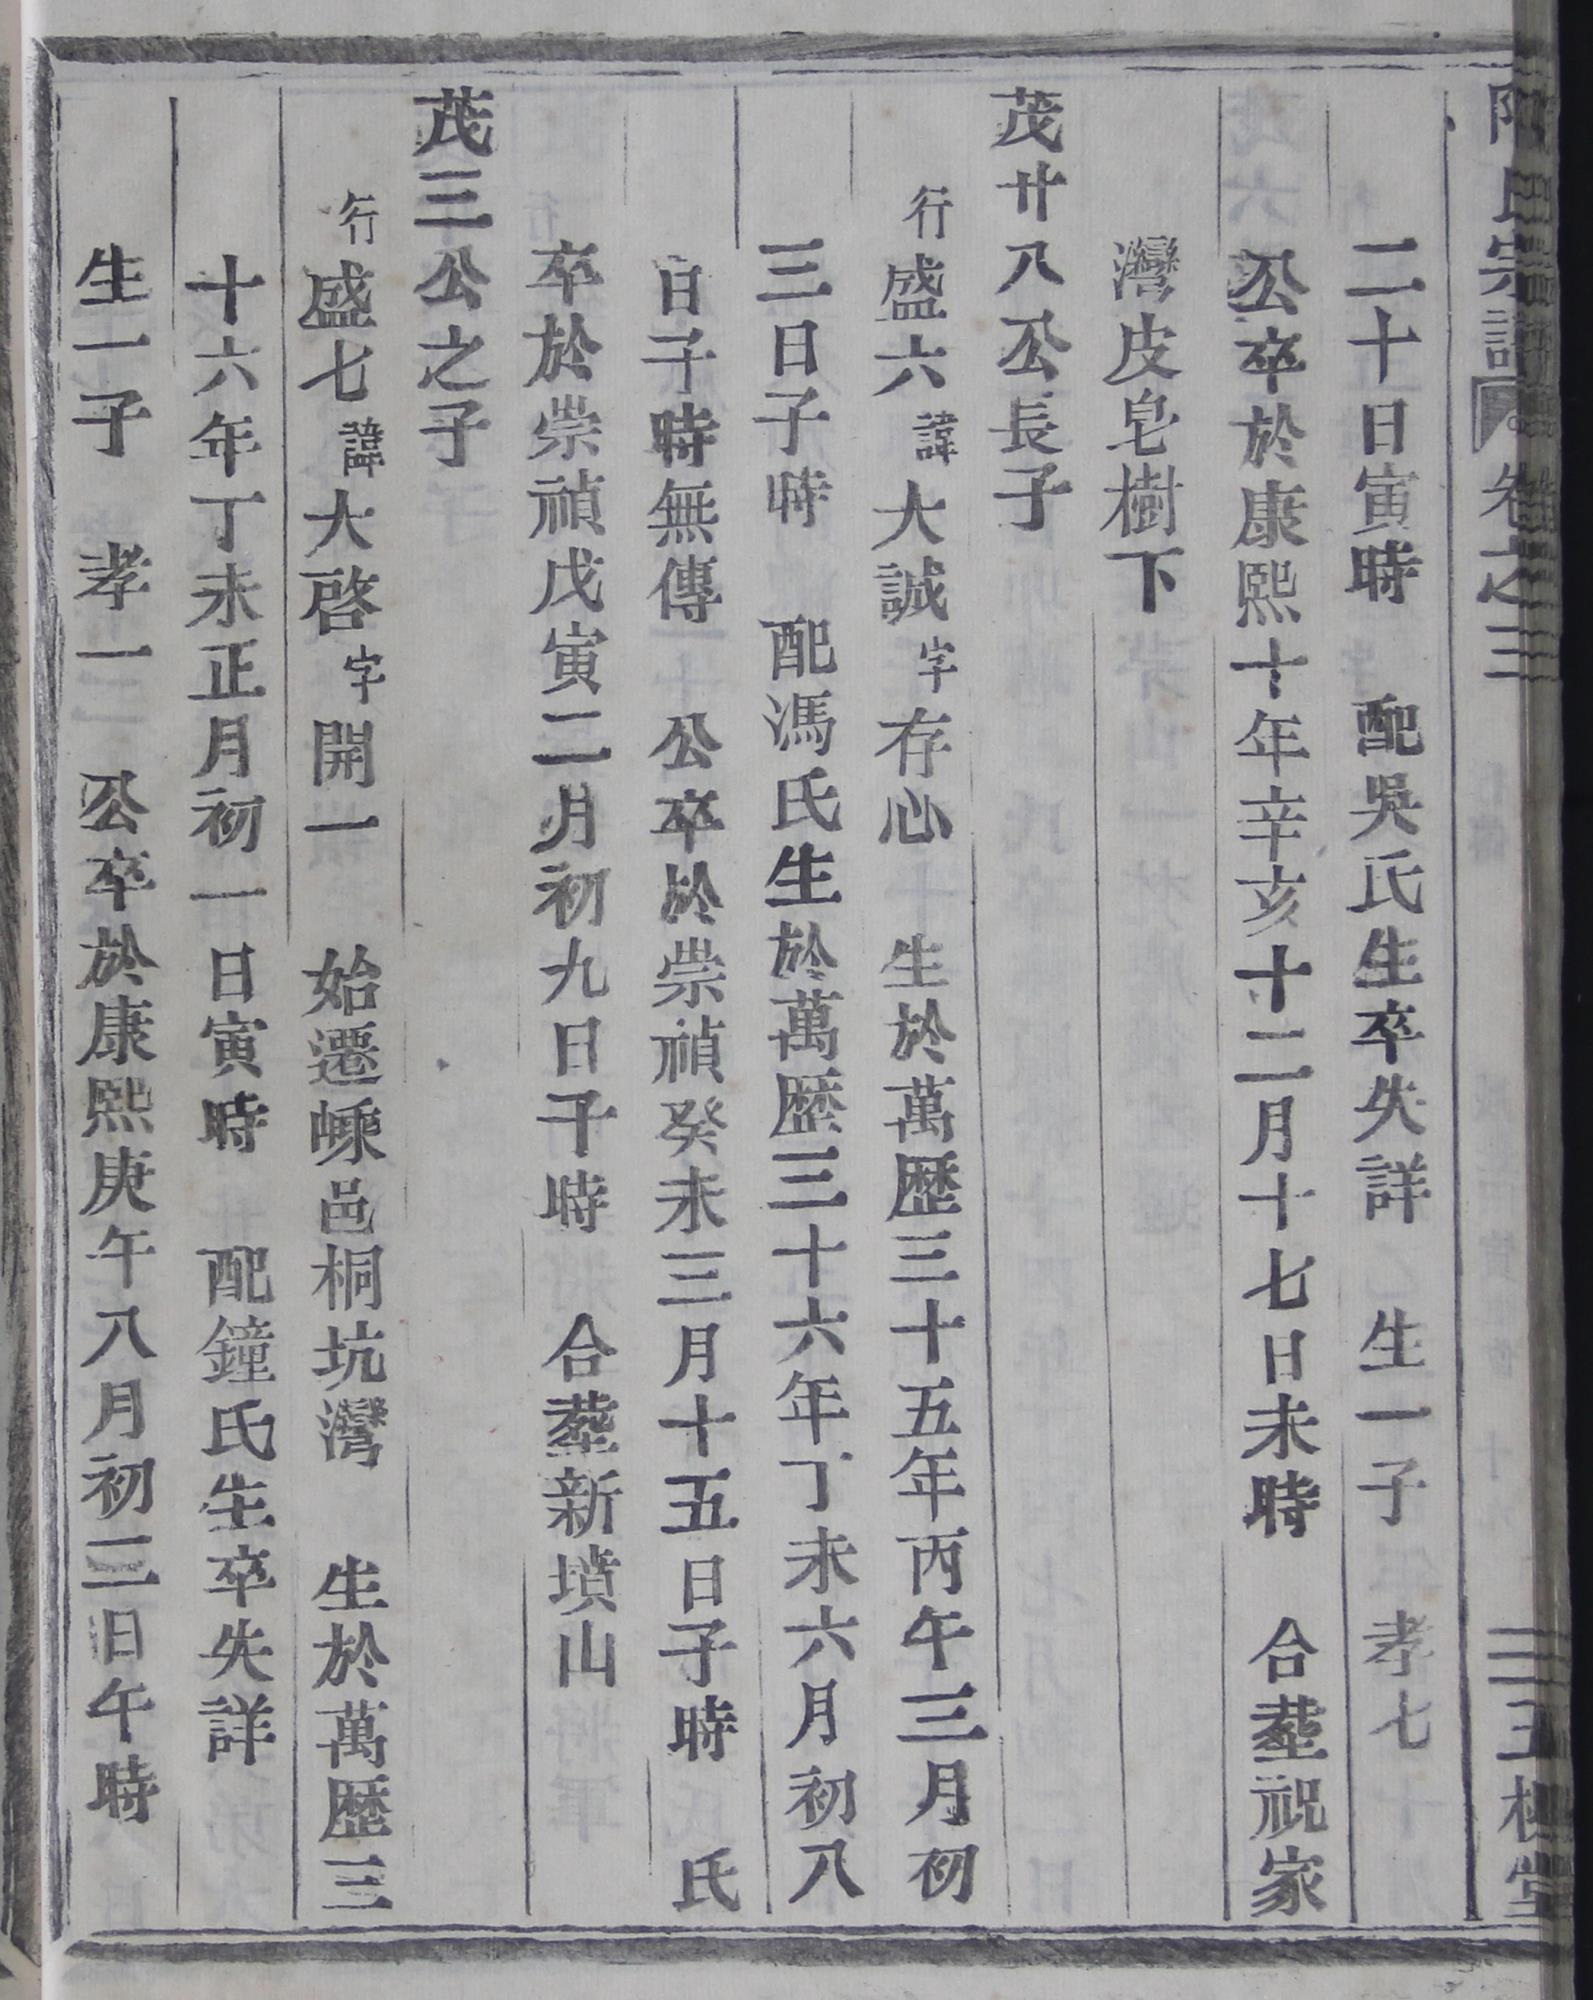 氏宗譜 卷之三
二十日寅時 配吳氏生卒失詳 生一子 孝七
公卒於康熙十年辛亥十二月十七日未時 合塟祝家
灣皮皂樹下
茂廿八公長子
行盛六諱大誠字存心 生於萬歷三十五年丙午三月初
三日子時 配馮氏生於萬歷三十六年丁未六月初八
日子時無傳 公卒於崇禎癸未三月十五日子時 氏
卒於崇禎戊寅二月初九日子時 合塟新墳山
茂三公之子
行盛七諱大啓字開一 始遷嵊邑桐坑灣 生於萬歷三
十六年丁未正月初一日寅時 配鐘氏生卒失詳
生一子 孝一 公卒於康熙庚午八月初三日午時